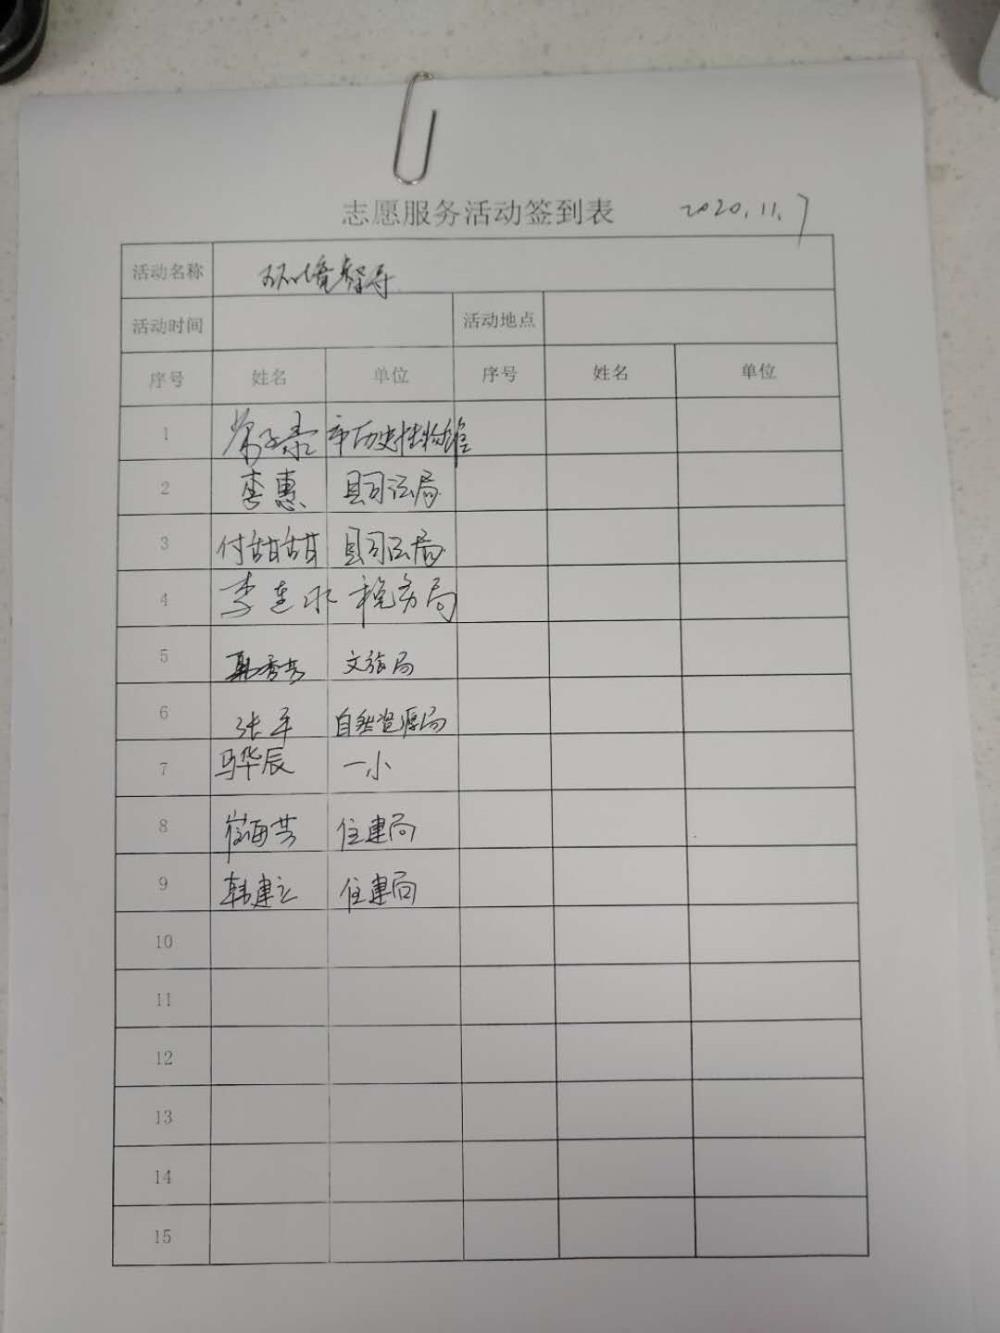 志愿服务活动签到表 2020.11.7
活动名称 环境督导
活动时间 活动地点
序号 姓名 单位 序号 姓名 单位
1
2 李惠 县司法局
3 付甜甜 县司法局
4 李连水 税务局
5 秀芳 文旅局
6 张平 自然资源局
7 马华辰 一小
8 崔海芳 住建局
9 韩建立 住建局
10
11
12
13
14
15